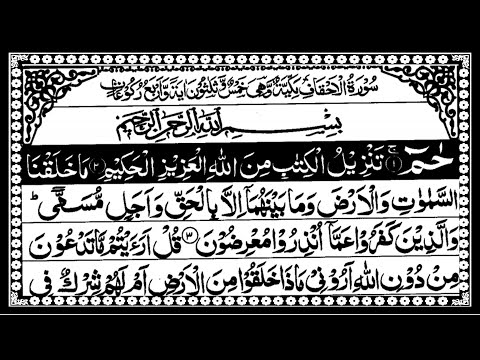 سُوْرَةُ الْاَحْقَافِ مَكِّيَّةٌ وَّهِيَ خَمْسٌ وَّثَلٰثُوْنَ اٰيَةً وَّاَرْبَعُ رُكُوْعَاتٍ
بِسْمِ اللّٰهِ الرَّحْمٰنِ الرَّحِيْمِ
حٰمٓ ۚ﴿۱﴾ تَنْزِيْلُ الْكِتٰبِ مِنَ اللّٰهِ الْعَزِيْزِ الْحَكِيْمِ ﴿۲﴾ مَا خَلَقْنَا
السَّمٰوٰتِ وَالْاَرْضَ وَمَا بَيْنَهُمَاۤ اِلَّا بِالْحَقِّ وَاَجَلٍ مُّسَمًّى ؕ
وَالَّذِيْنَ كَفَرُوْا عَمَّاۤ اُنْذِرُوْا مُعْرِضُوْنَ ﴿۳﴾ قُلْ اَرَءَيْتُمْ مَّا تَدْعُوْنَ
مِنْ دُوْنِ اللّٰهِ اَرُوْنِيْ مَاذَا خَلَقُوْا مِنَ الْاَرْضِ اَمْ لَهُمْ شِرْكٌ فِى